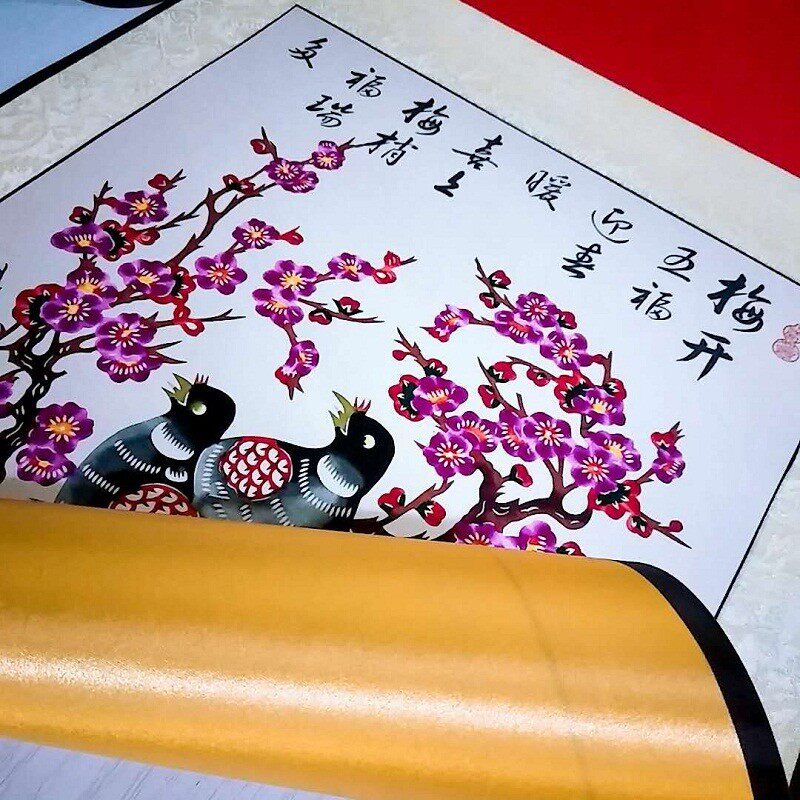 梅开
五福
迎春
暖
喜上
梅梢
福瑞
多